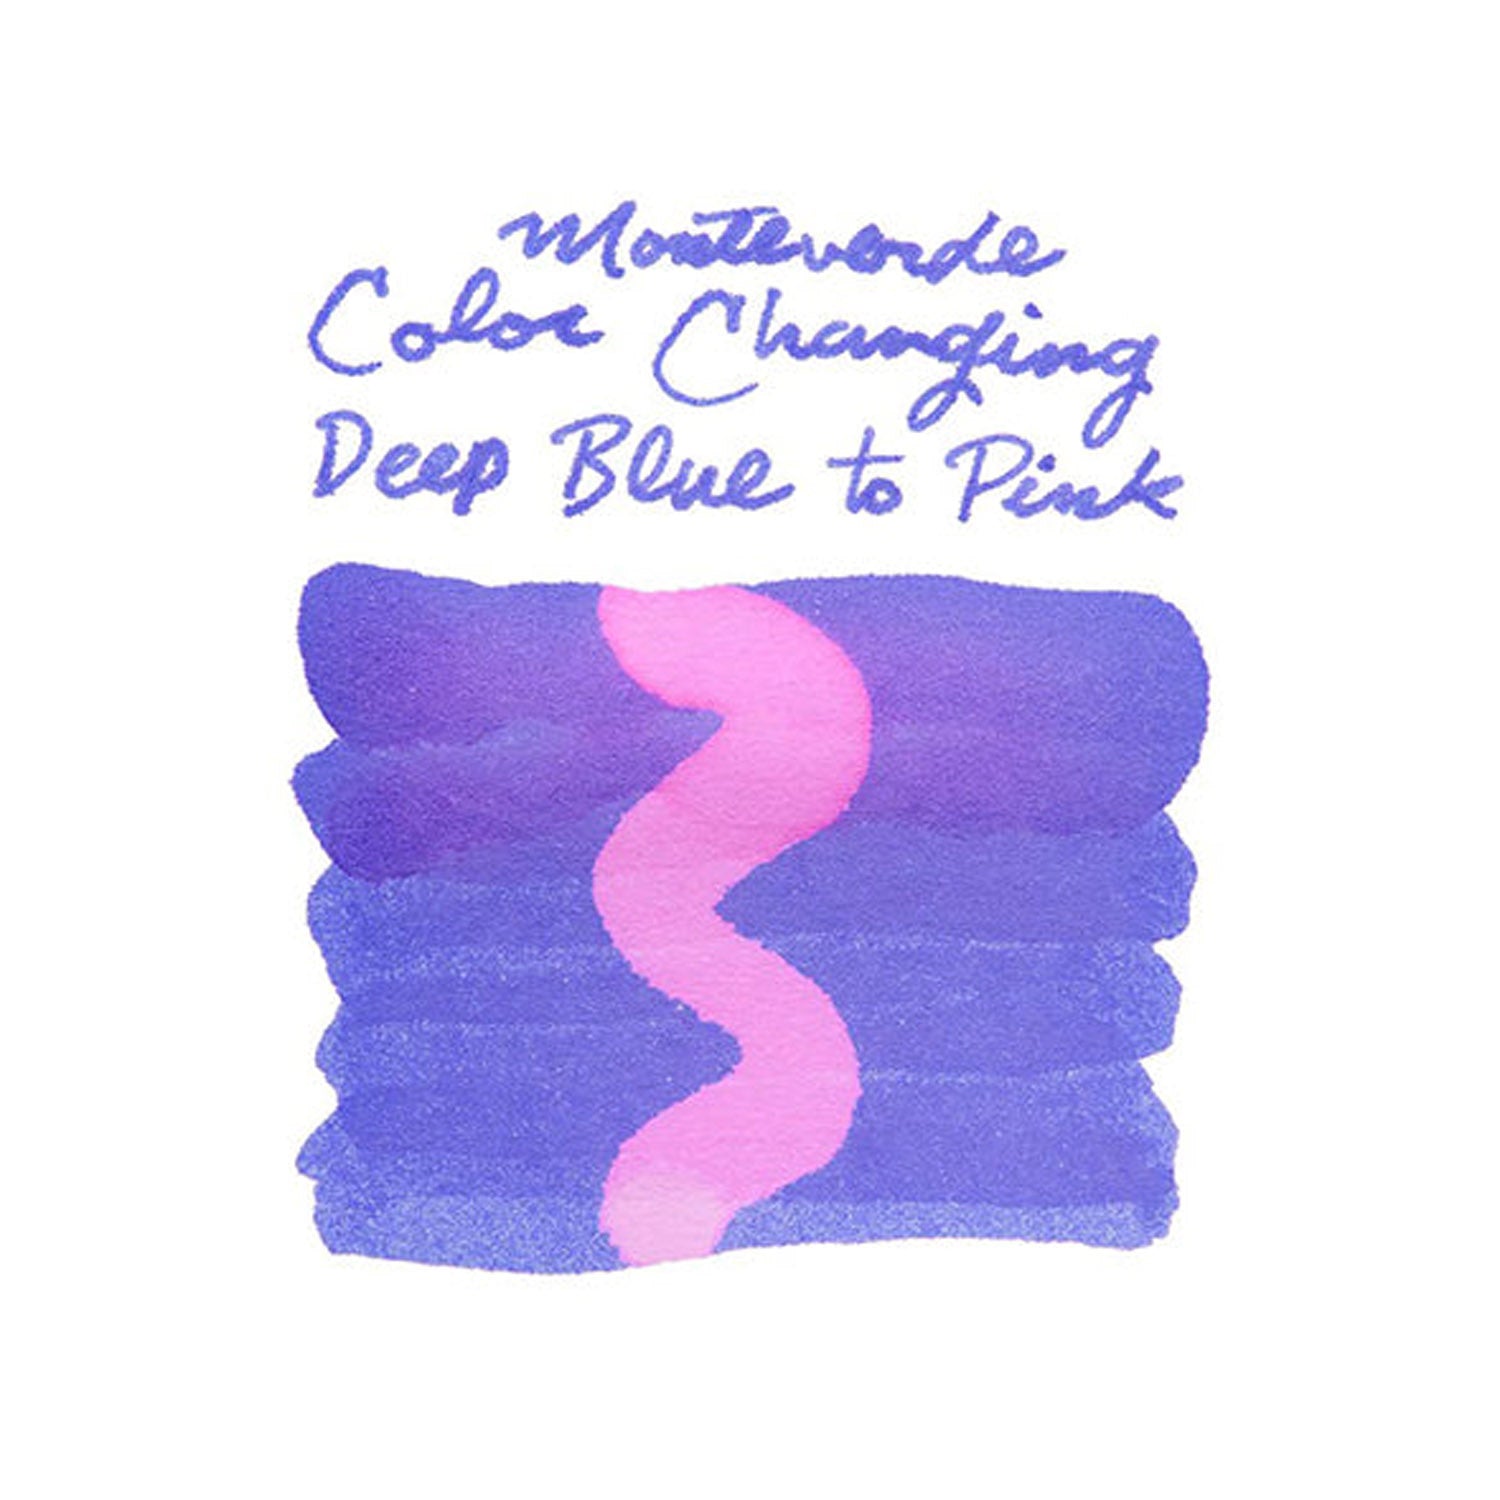 Monteverde
Color Changing
Deep Blue to Pink